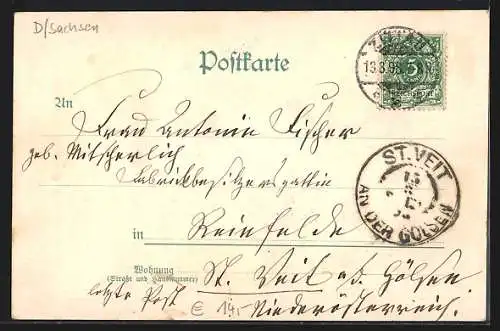 D/Sachsen
Postkarte
ZITTAU
13.3.98
5
An
Frau Antonie Fischer
geb. Mitscherlich
Fabrikbesitzersgattin
ST. VEIT
AN DER GÖLSEN
in Reinfelde
Wohnung
(Straße und Hausnummer)
St. Veit a/d. Gölsen
letzte Post
Niederösterreich.
€ 14,-